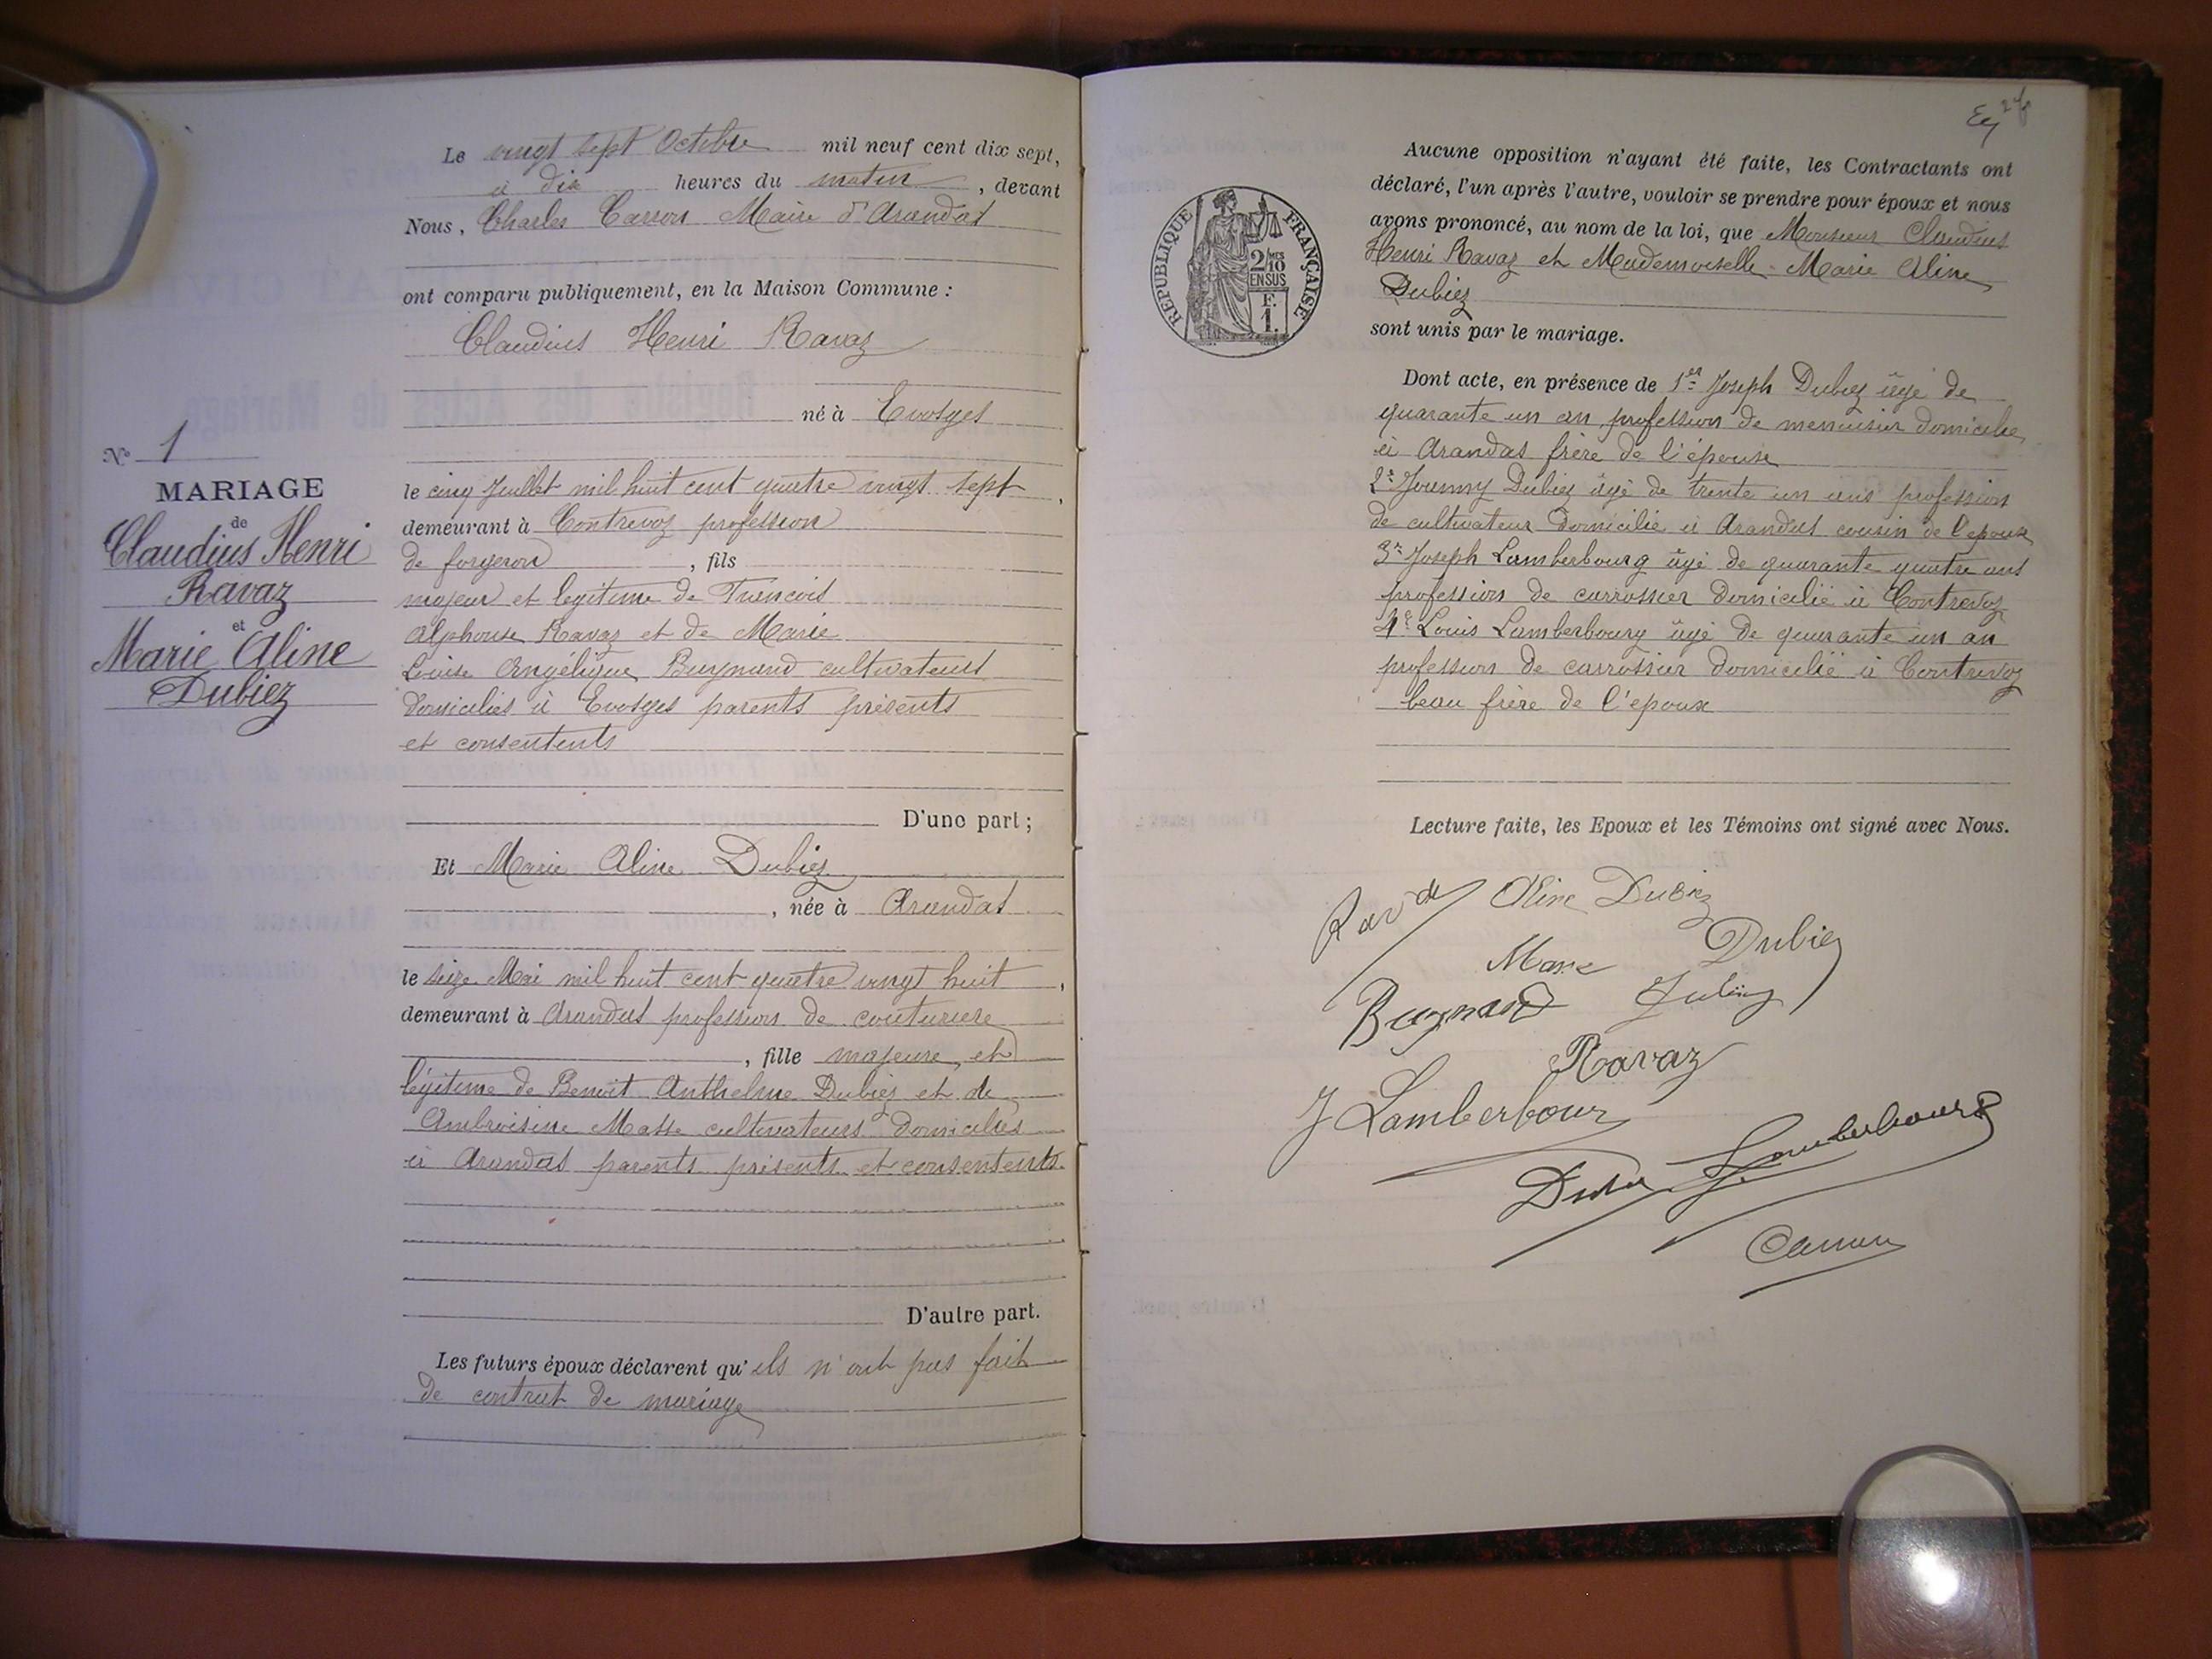 Le vingt sept Octobre mil neuf cent dix sept,
à dix heures du matin, devant
Nous, Charles Carron Maire d'Arandas
ont comparu publiquement, en la Maison Commune :
Claudius Henri Ravaz
né à Evosges
le cinq Juillet mil huit cent quatre vingt sept,
demeurant à Contrevoz profession
de forgeron, fils
majeur et legitime de Francois
Alphonse Ravaz et de Marie
Louise Angélique Buynand cultivateurs
domiciliés à Evosges parents présents
et consentents
D'une part ;
N° 1
MARIAGE
de
Claudius Henri
Ravaz
et
Marie Aline
Dubiez
Et Marie Aline Dubiez
, née à Arandas
le seize Mai mil huit cent quatre vingt huit,
demeurant à Arandas profession de couturière
, fille majeure et
légitime de Benoit Anthelme Dubiez et de
Ambroisine Masse cultivateurs domiciliés
à Arandas parents présents et consentents.
D'autre part.
Les futurs époux déclarent qu'ils n'ont pas fait
de contrat de mariage
REPUBLIQUE FRANÇAISE
2/10
EN SUS
F.
1.
Aucune opposition n'ayant été faite, les Contractants ont
déclaré, l'un après l'autre, vouloir se prendre pour époux et nous
avons prononcé, au nom de la loi, que Monsieur Claudius
Henri Ravaz et Mademoiselle Marie Aline
Dubiez
sont unis par le mariage.
Dont acte, en présence de 1er Joseph Dubiez âgé de
quarante un an, profession de menuisier domicilié
à Arandas frère de l'épouse
2e Dubiez âgé de trente un ans profession
de cultivateur domicilié à Arandas cousin de l'epouse
3e Joseph Lamberbourg âgé de quarante quatre ans
profession de carrossier domicilié à Contrevoz
4e Louis Lamberbourg âgé de quarante un an
profession de carrossier domicilié à Contrevoz
beau frère de l'époux
Lecture faite, les Epoux et les Témoins ont signé avec Nous.
Aline Dubiez
Dubiez
Buynand
Ravaz
J Lamberbour
Lamberbourg